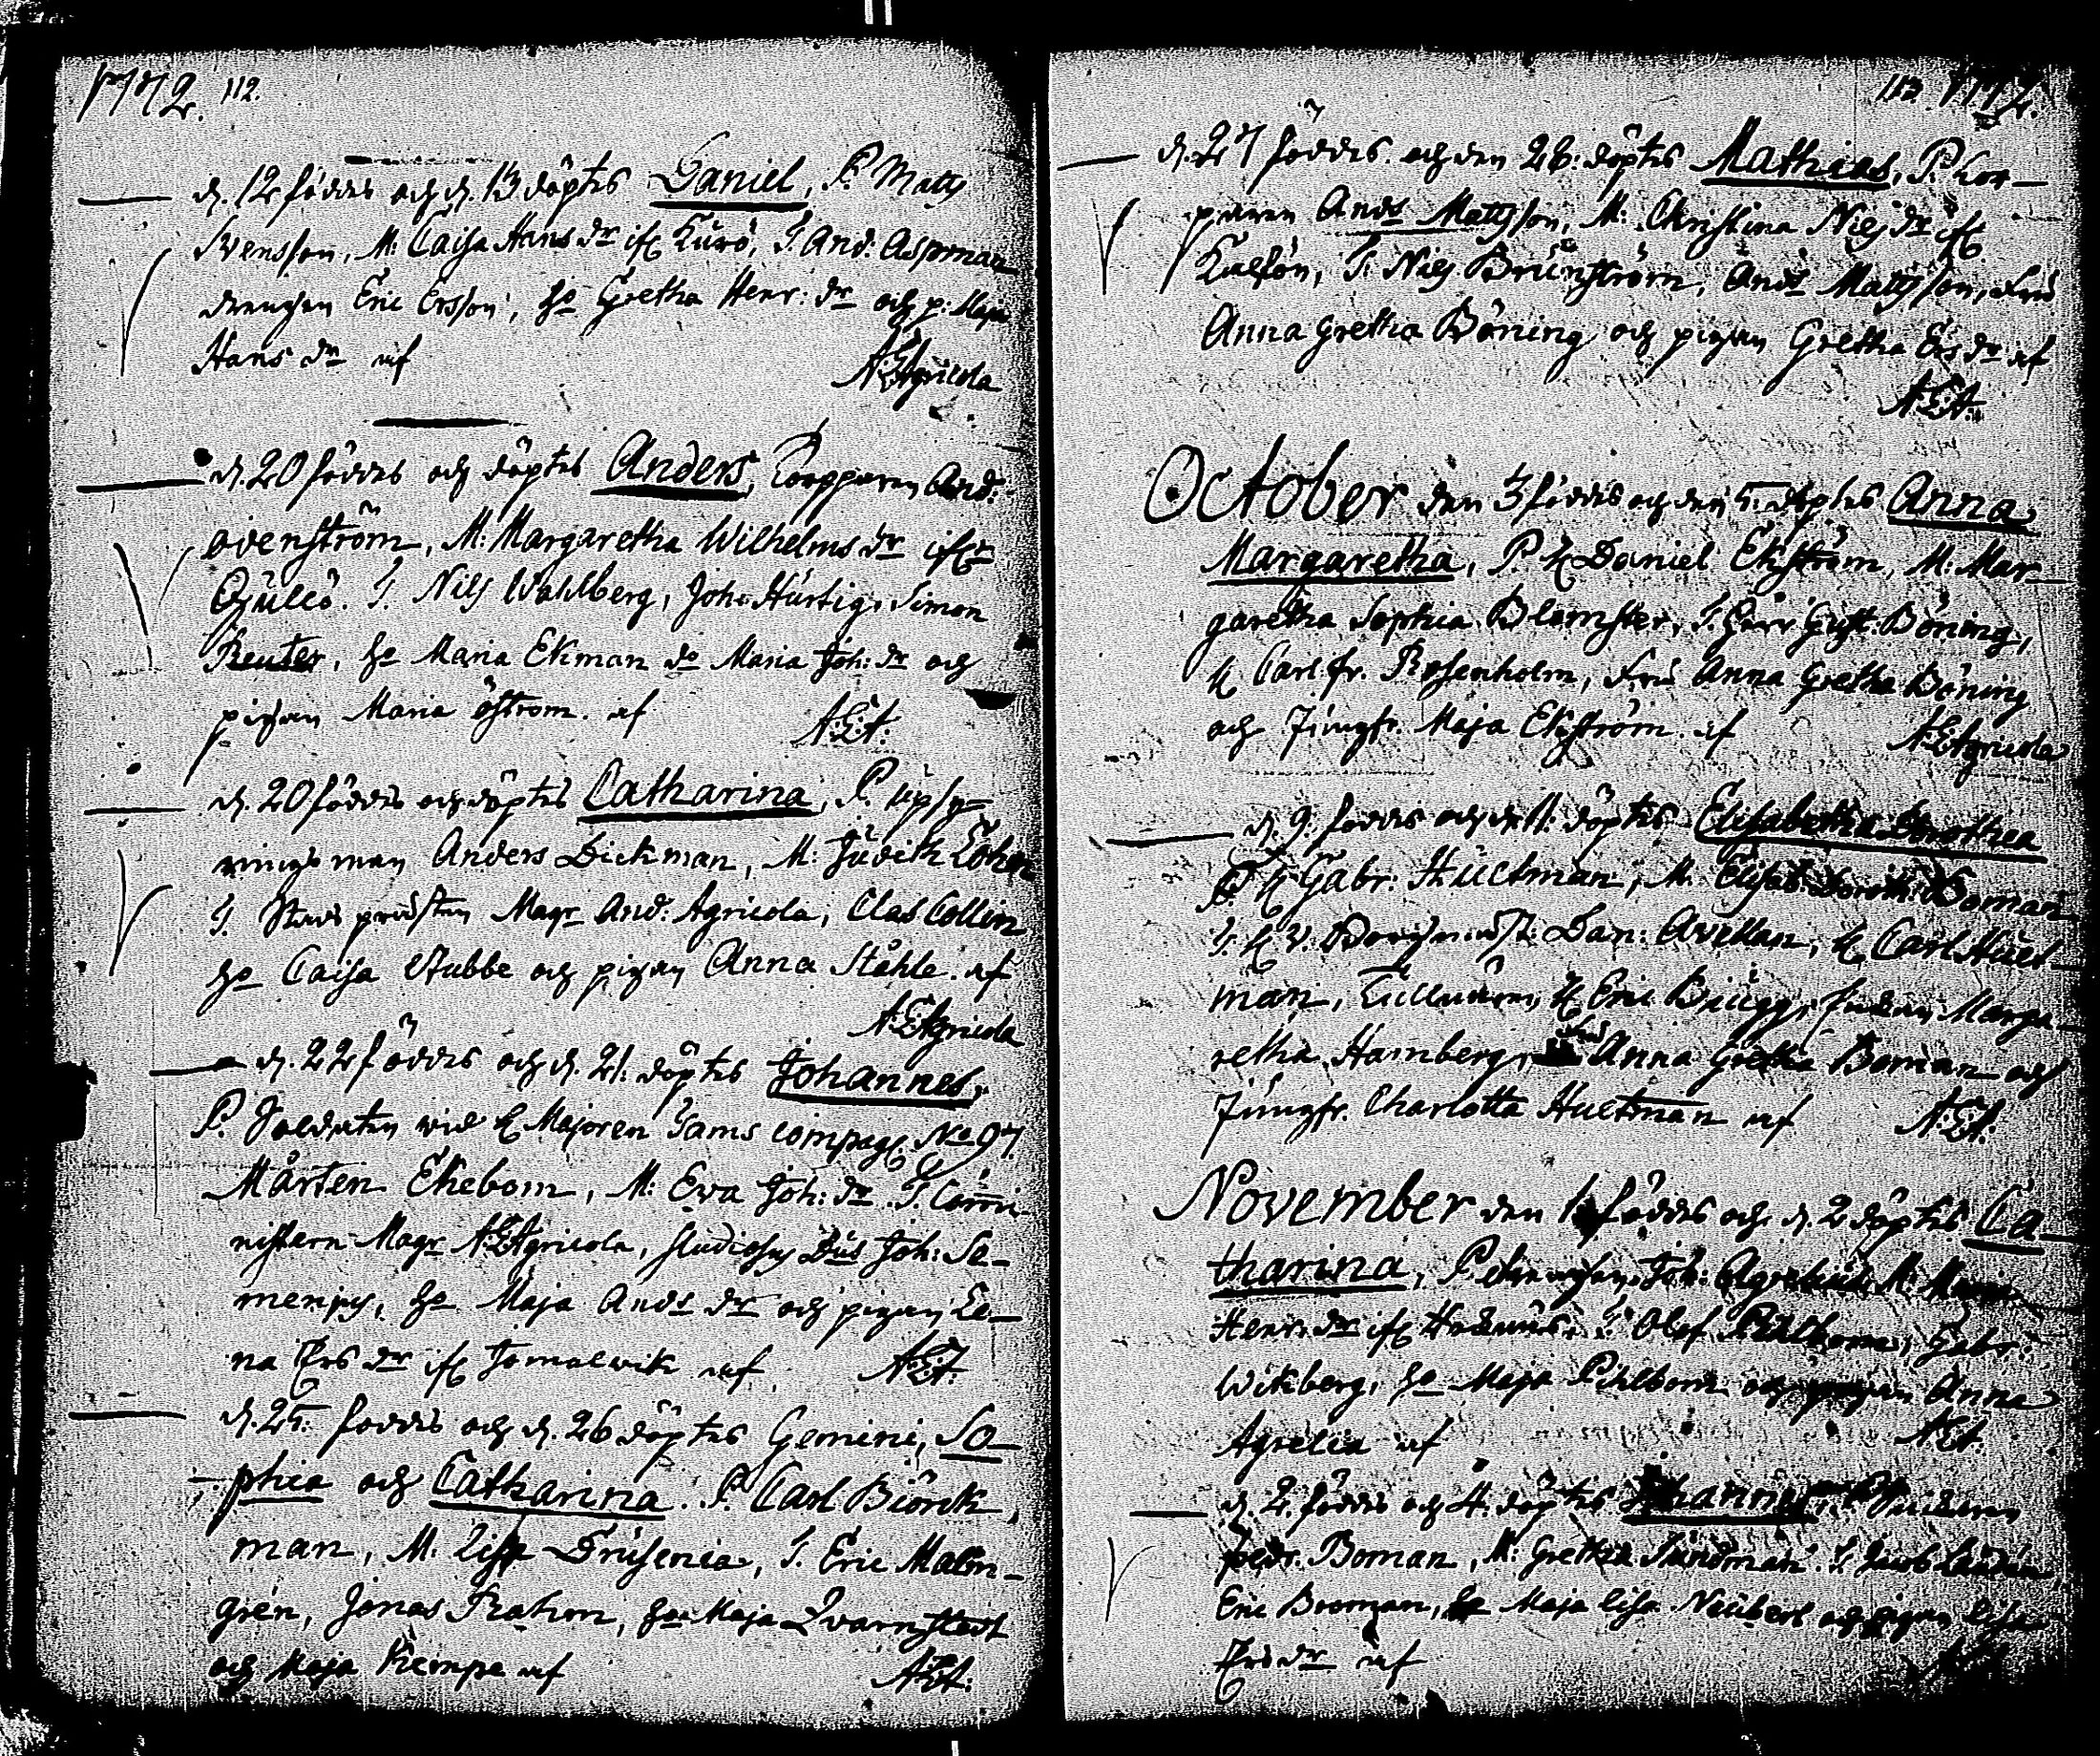 1772. 112.
d. 12 föddes och d. 13 döptes Daniel, P. Matts
Svensson, M: Caisa Hans dr ifr Kurö, T. And: Aspman
drengen Eric Ersson, ho Gretha Henr: dr och p: Maja
Hans dr af
A:E:Agricola
d. 20 föddes och döptes Anders, And:
ovenström, M: Margaretha Wilhelms dr ifr
T. Nils Wahlberg, Joh: Hurtig, Simon
Reuter, ho Maria Ekman do Maria Joh: dr och
pigan Maria öström. af A:E:A:
d. 20 föddes och döptes Catharina, P. upsy=
ningsman Anders Dickman, M: Judith
T. prosten Magr And: Agricola, Clas Collin
ho Caisa Stubbe och pigan Anna Ståhle. af
A:E:Agricola
d. 22 föddes och d. 21. döptes Johannes,
P. Soldaten wid H Majoren compag: No 97.
Mårten Ekebom, M: Eva Joh: dr T. Commi-
nistern Magr A:E:Agricola, studiosus Dns Joh: Se-
menius, ho Maja Ands dr och pigan Le-
na Ers dr ifr Jomalwik af A:E:A:
d. 25. föddes och d. 26 döptes Gemini, So-
phia och Catharina. P. Carl Biörck
man, M. Lisa Drusenia, T. Eric Malm-
grén, Jonas Rahm, ho Maja Qvarnstedt
och Maja Kempe af A:E:A:
113. 1772.
d. 27 föddes och den 28: döptes Mathias, P. Kor-
Ands Mattsson, M: Christina Nils dr ifr
T: Nils Brunström, Ands Mattsson, Fru
Anna Gretha Böning och pigan Gretha Ers dr af
A:E:A:
October den 3 föddes och den 5. döptes Anna
Margaretha, P. H Daniel Ekström, M: Mar-
garetha Sophia Blomster, T. Herr Gust: Böning,
H Carl fr. Rosenholm, Fru Anna Gretha Böning
och Jungfr. Maja Ekström. af A:E:Agricola
d. 9: föddes och d. 11: döptes Elisabetha Dorothea
P H Gabr: Hultman, M. Elisab: Doroth: Boman
T. H Dan: Avellan, H Carl Hult-
man, H Eric Brugg, Marga-
retha Hamberg, Fru Anna Gretha Boman och
Jungfr. Charlotta Hultman af A:E:A:
November den 1 föddes och d. 2 döptes Ca-
tharina, P. Joh: M:
Henr: dr ifr T: Olof Gabr:
Witzberg, ho Maja och pigan Anna
Agrelia af A:E:A:
d. 2 föddes och 4. döptes Johannes, P.
Pedr. Boman, M: Gretha Sundman. T.
Eric Boman, ho Maja Lisa och pigan Lisa
Ers dr af